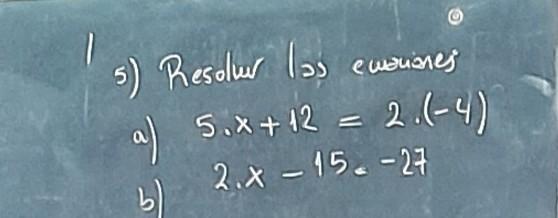 5) Resolver las ecuaciones
a) 5.x + 12 = 2.(-4)
b) 2.x - 15 = -27